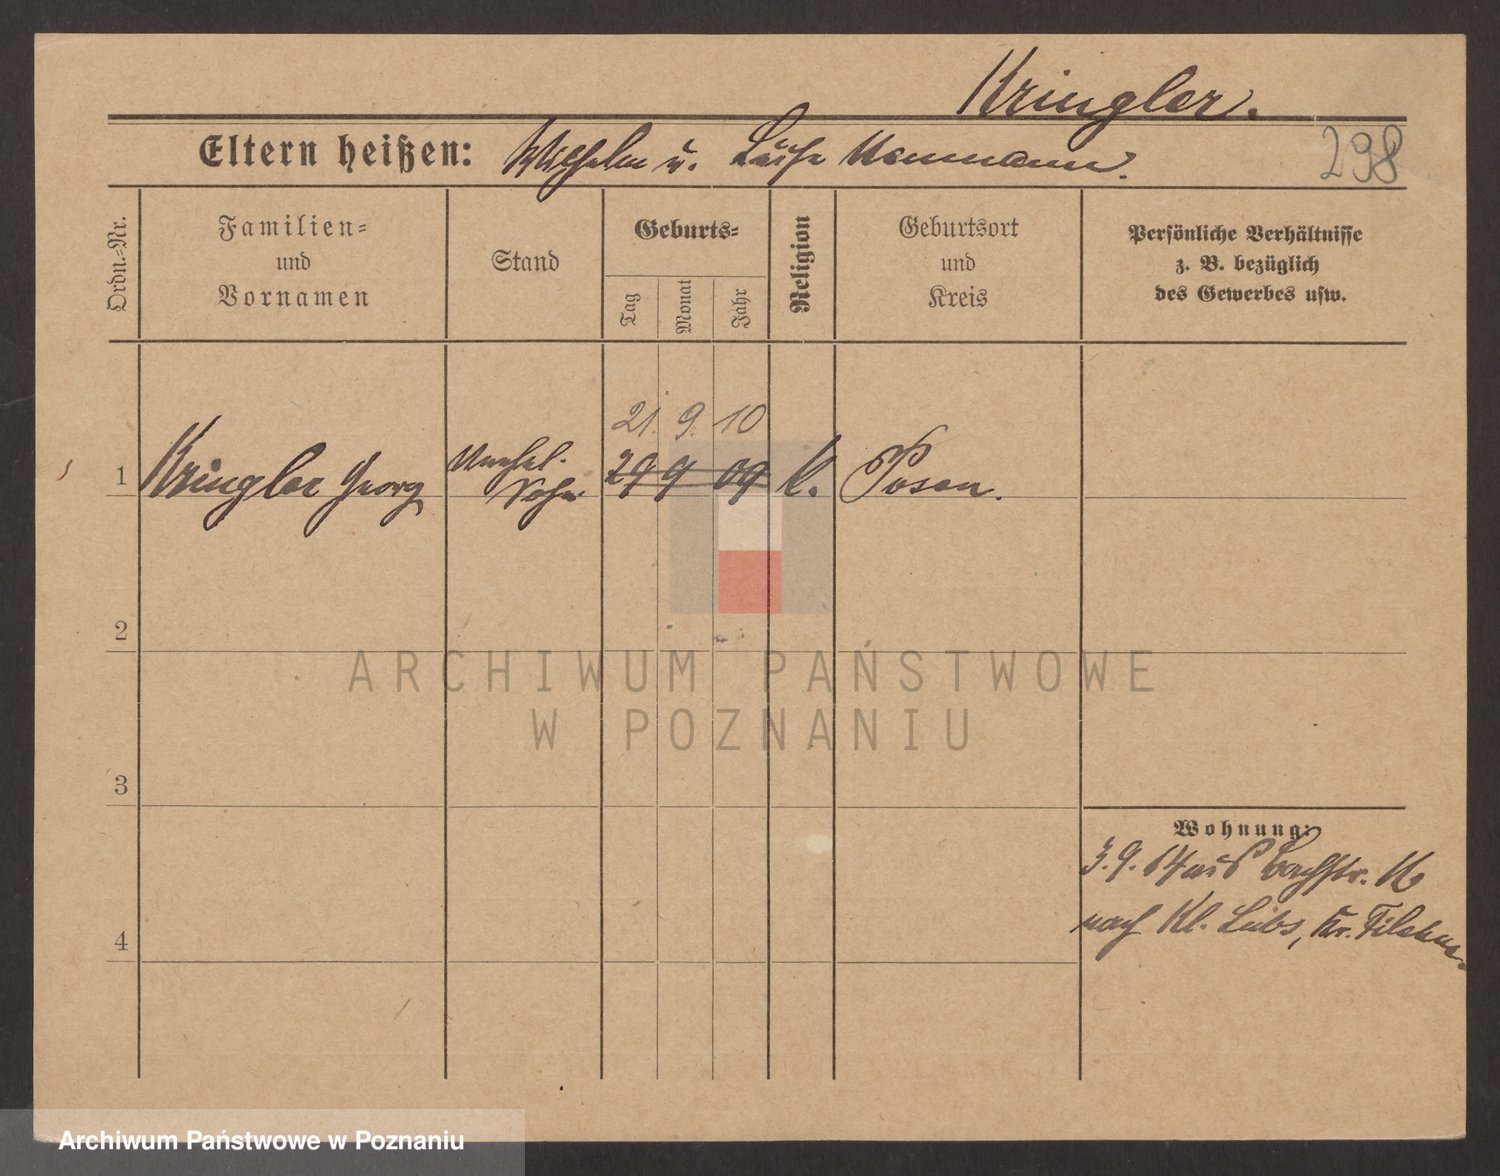 Kringler.
Eltern heißen: Wilhelm u. Luise Neumann.
298
Ordn.-Nr.
Familien-
und
Vornamen
Stand
Geburts-
Tag
Monat
Jahr
Religion
Geburtsort
und
Kreis
Persönliche Verhältnisse
z. B. bezüglich
des Gewerbes usw.
21. 9. 10
1 Kringler Georg
Sohn
9 09 k. Posen.
2
ARCHIWUM PAŃSTWOWE
W POZNANIU
3
Wohnung:
3. 9. 14 aus Bachstr.
4
nach Kl. Lubs, Kr. Filehne.
Archiwum Państwowe w Poznaniu